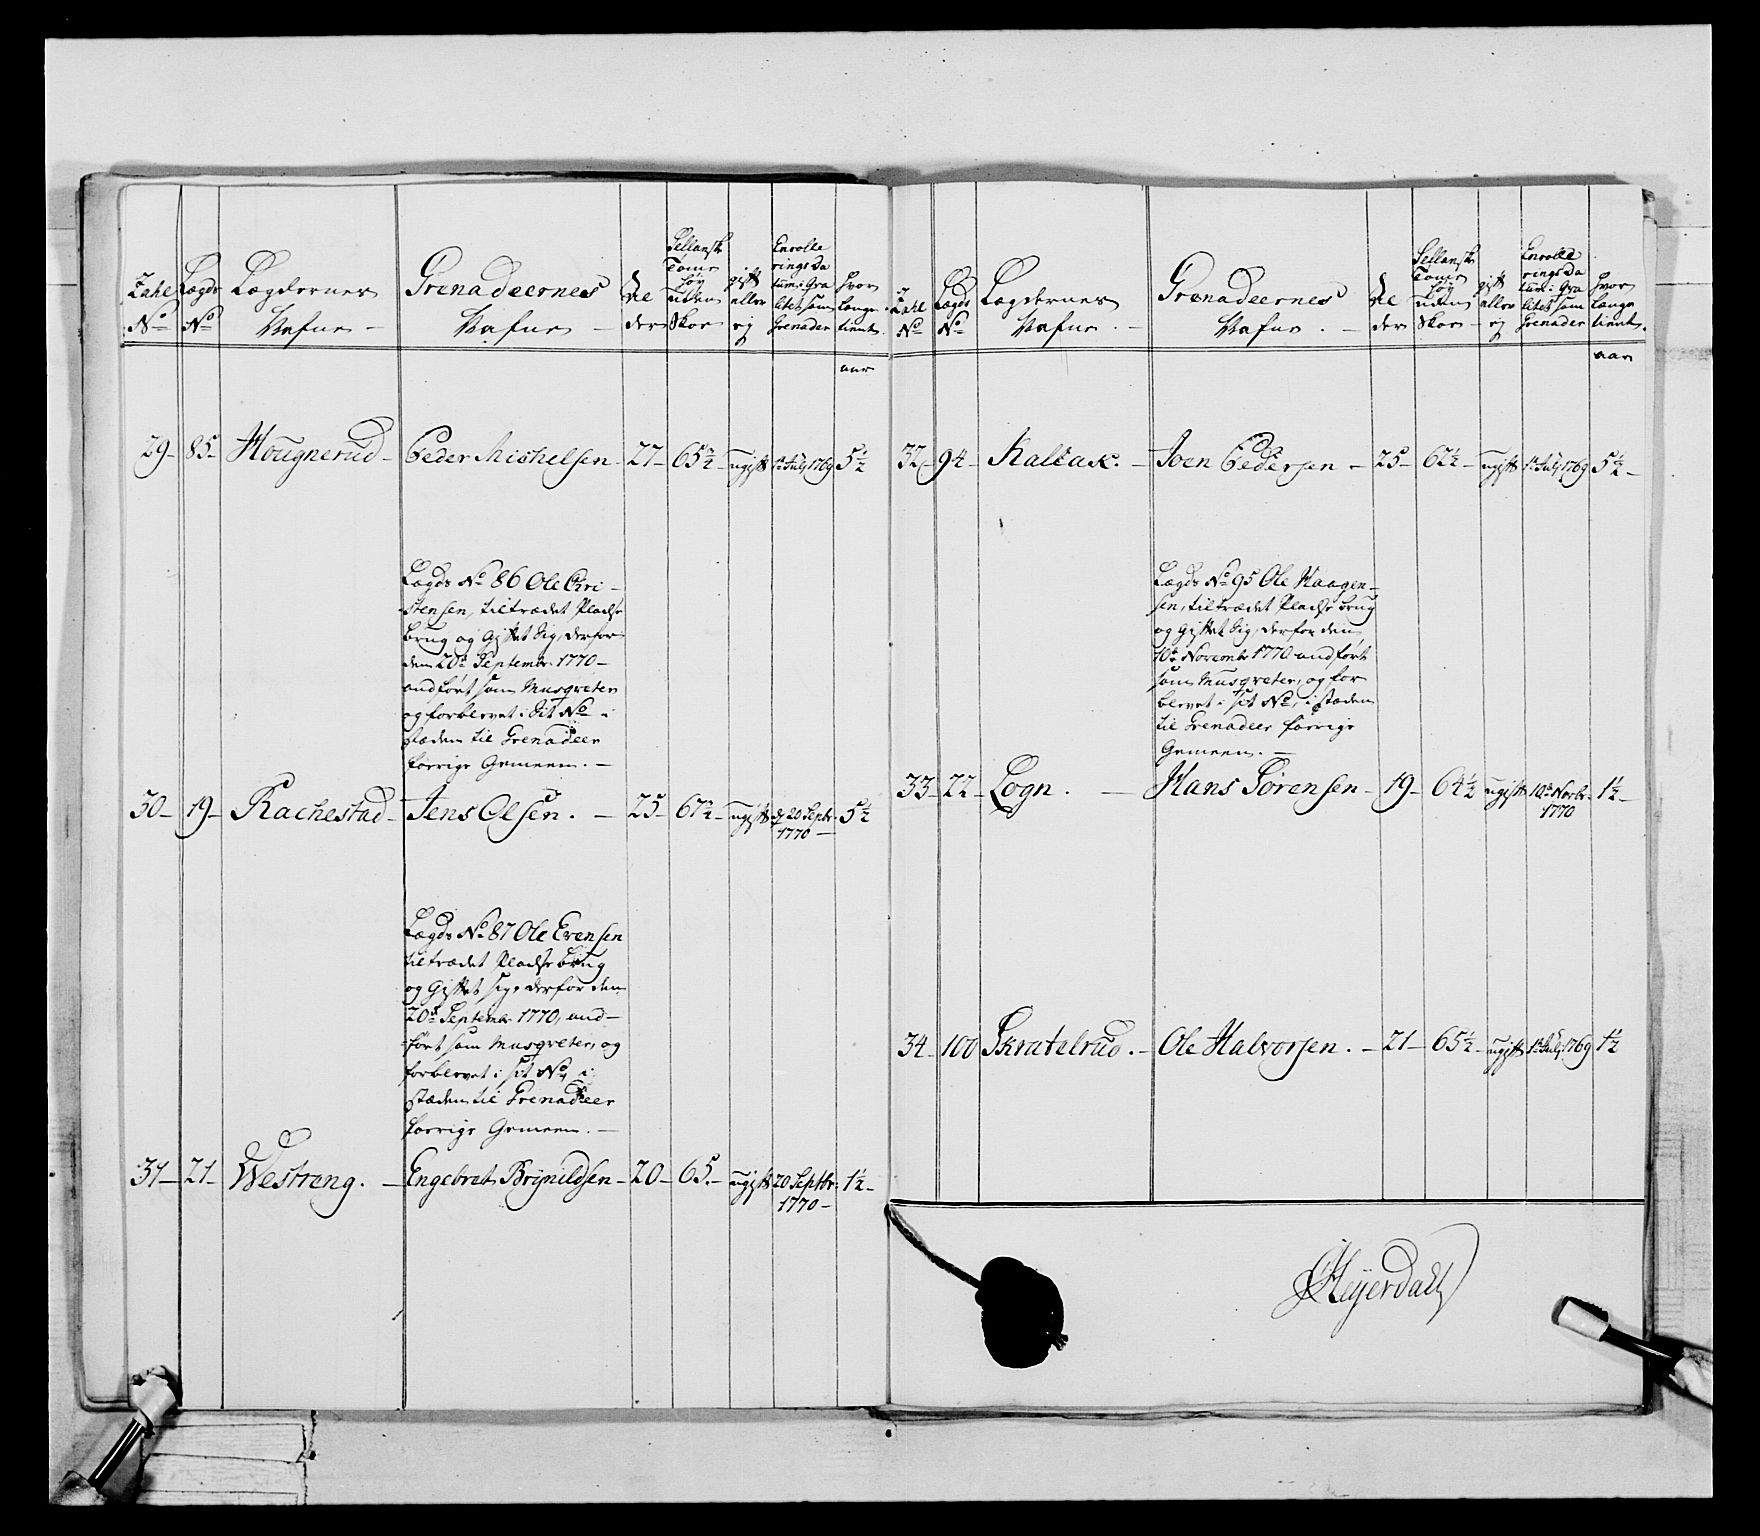 Tahl No
Lægds No
Lægdernes Nafne –
Grenadeernes Nafne –
Alder
Sellansk Tome Høy uden Skoe
gift eller ey
Enrolle rings Da tum i Gra litet som Grenader
Hvor længe tient.
aar
29– 85– Hougnerud– Peder Michelsen– 27– 65½– ugift 1t July 1769 5½
Lægds No 86 Ole Chri–
stensen, tiltrædet Pladse
brug og Giftet Sig, derfor
den 20de Septembr 1770–
andført som Musqveter
og forblevet i Sit No i
stæden til Grenadeer
forrige Gemeen. –
30– 19– Rachestad– Jens Olsen. – 25– 67½– ugift d 20 Septbr. 1770– 5½
Lægds No 87 Ole Evensen
tiltrædet Pladse brug
og Giftet sig, derfor den
20de Septembr 1770, and–
ført som Musqveter, og
forblevet i sit No, i
stæden til Grenadeer
forrige Gemeen. –
31– 21– Westreng. – Engebret Brynildsen– 20– 65.– ugift 20 Septbr. 1770– 1½–
Tahl No
Lægds No
Lægdernes Nafne. –
Grenadeernes Nafne. –
Alder
Sellansk Tome Høy uden Skoe –
gift eller ey
Enrolle rings Da tum i Gra litet som Grenader
Hvor længe tient.
aar
32– 94– Kaltak. – Joen Pedersen – 25– 62½– ugift 1t July 1769 5½–
Lægds No 95 Ole Haagen–
sen, tiltrædet Pladse brug
og Giftet Sig, derfor den
10de Novembr 1770 andført
som Musqveter, og for
blevet i sit No, i stæden
til Grenadeer forrige
Gemeen. –
33– 22– Logn. – Hans Sørensen– 19– 64½ ugift 10de Novbr. 1770 1½–
34– 100 Skratelrud. – Ole Halvorsen. – 21– 65½– ugift 1t July 1769 1½
Heyerdahl